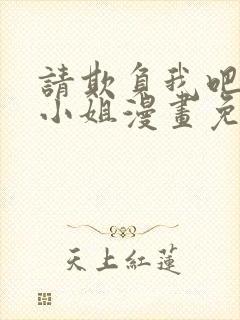 請欺負我吧
小姐漫畫免
天上紅蓮